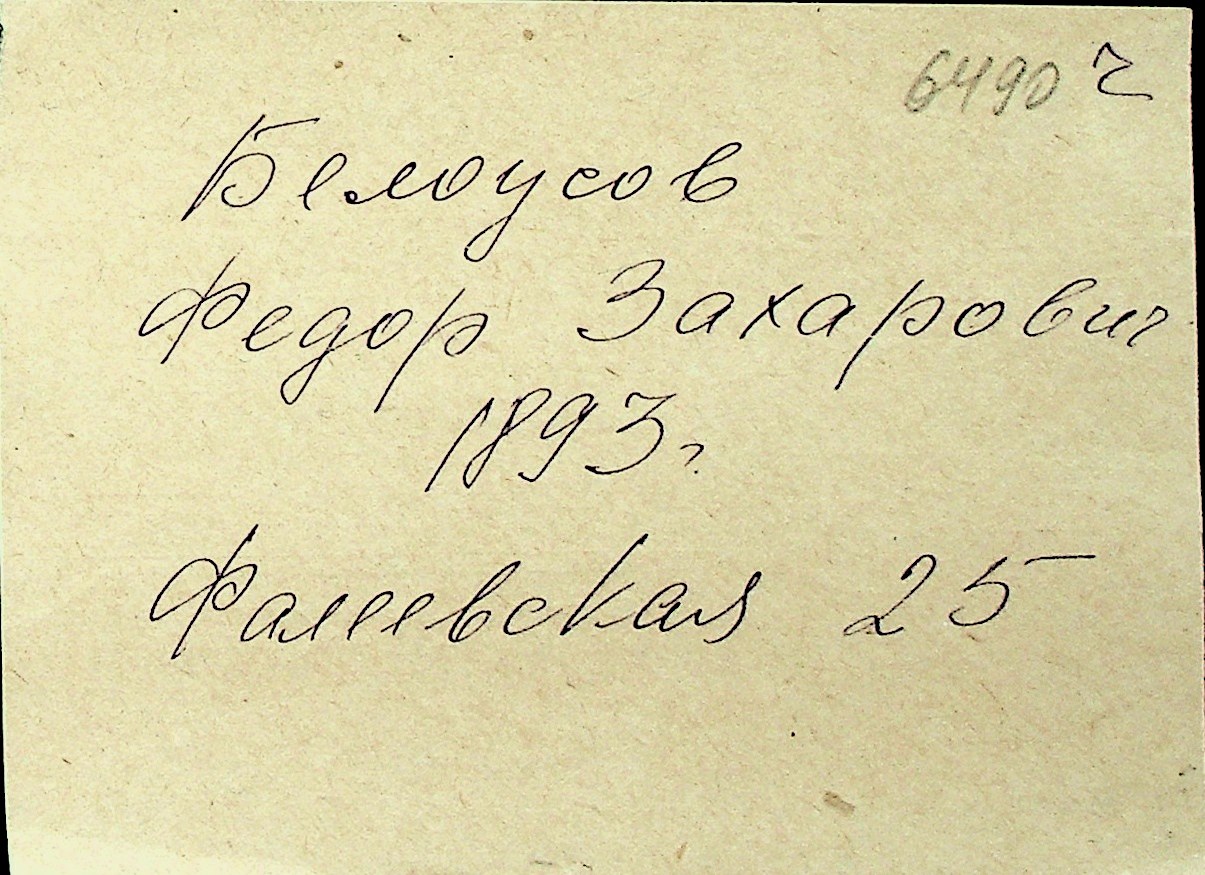 6490 ч
Белоусов
Федор Захарович
1893 г.
Фалеевская 25